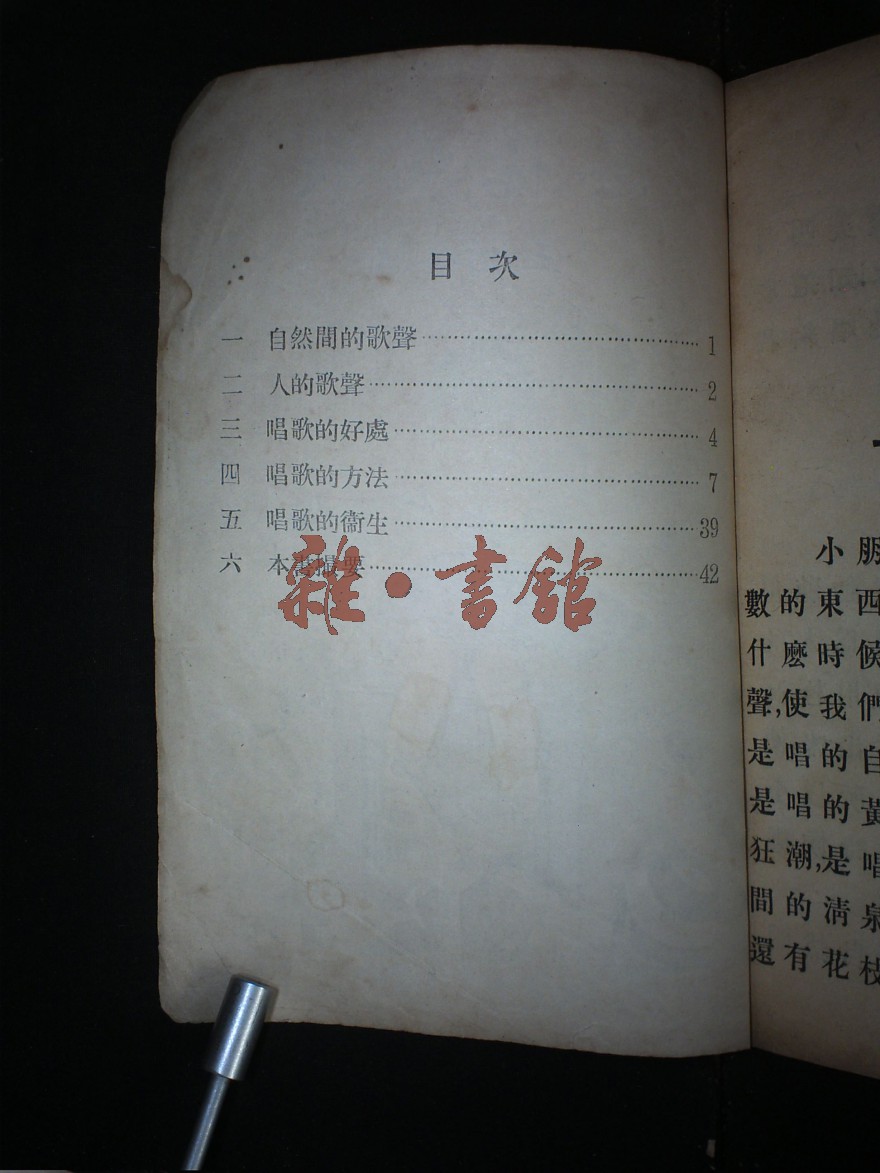 目次
一 自然間的歌聲 1
二 人的歌聲 2
三 唱歌的好處 4
四 唱歌的方法 7
五 唱歌的衞生 39
六 本書提要 42
雜·書館
小朋
數的東西
什麽時候
聲,使我們
是唱的自
是唱的黃
狂潮,是唱
間的淸泉
還有花枝